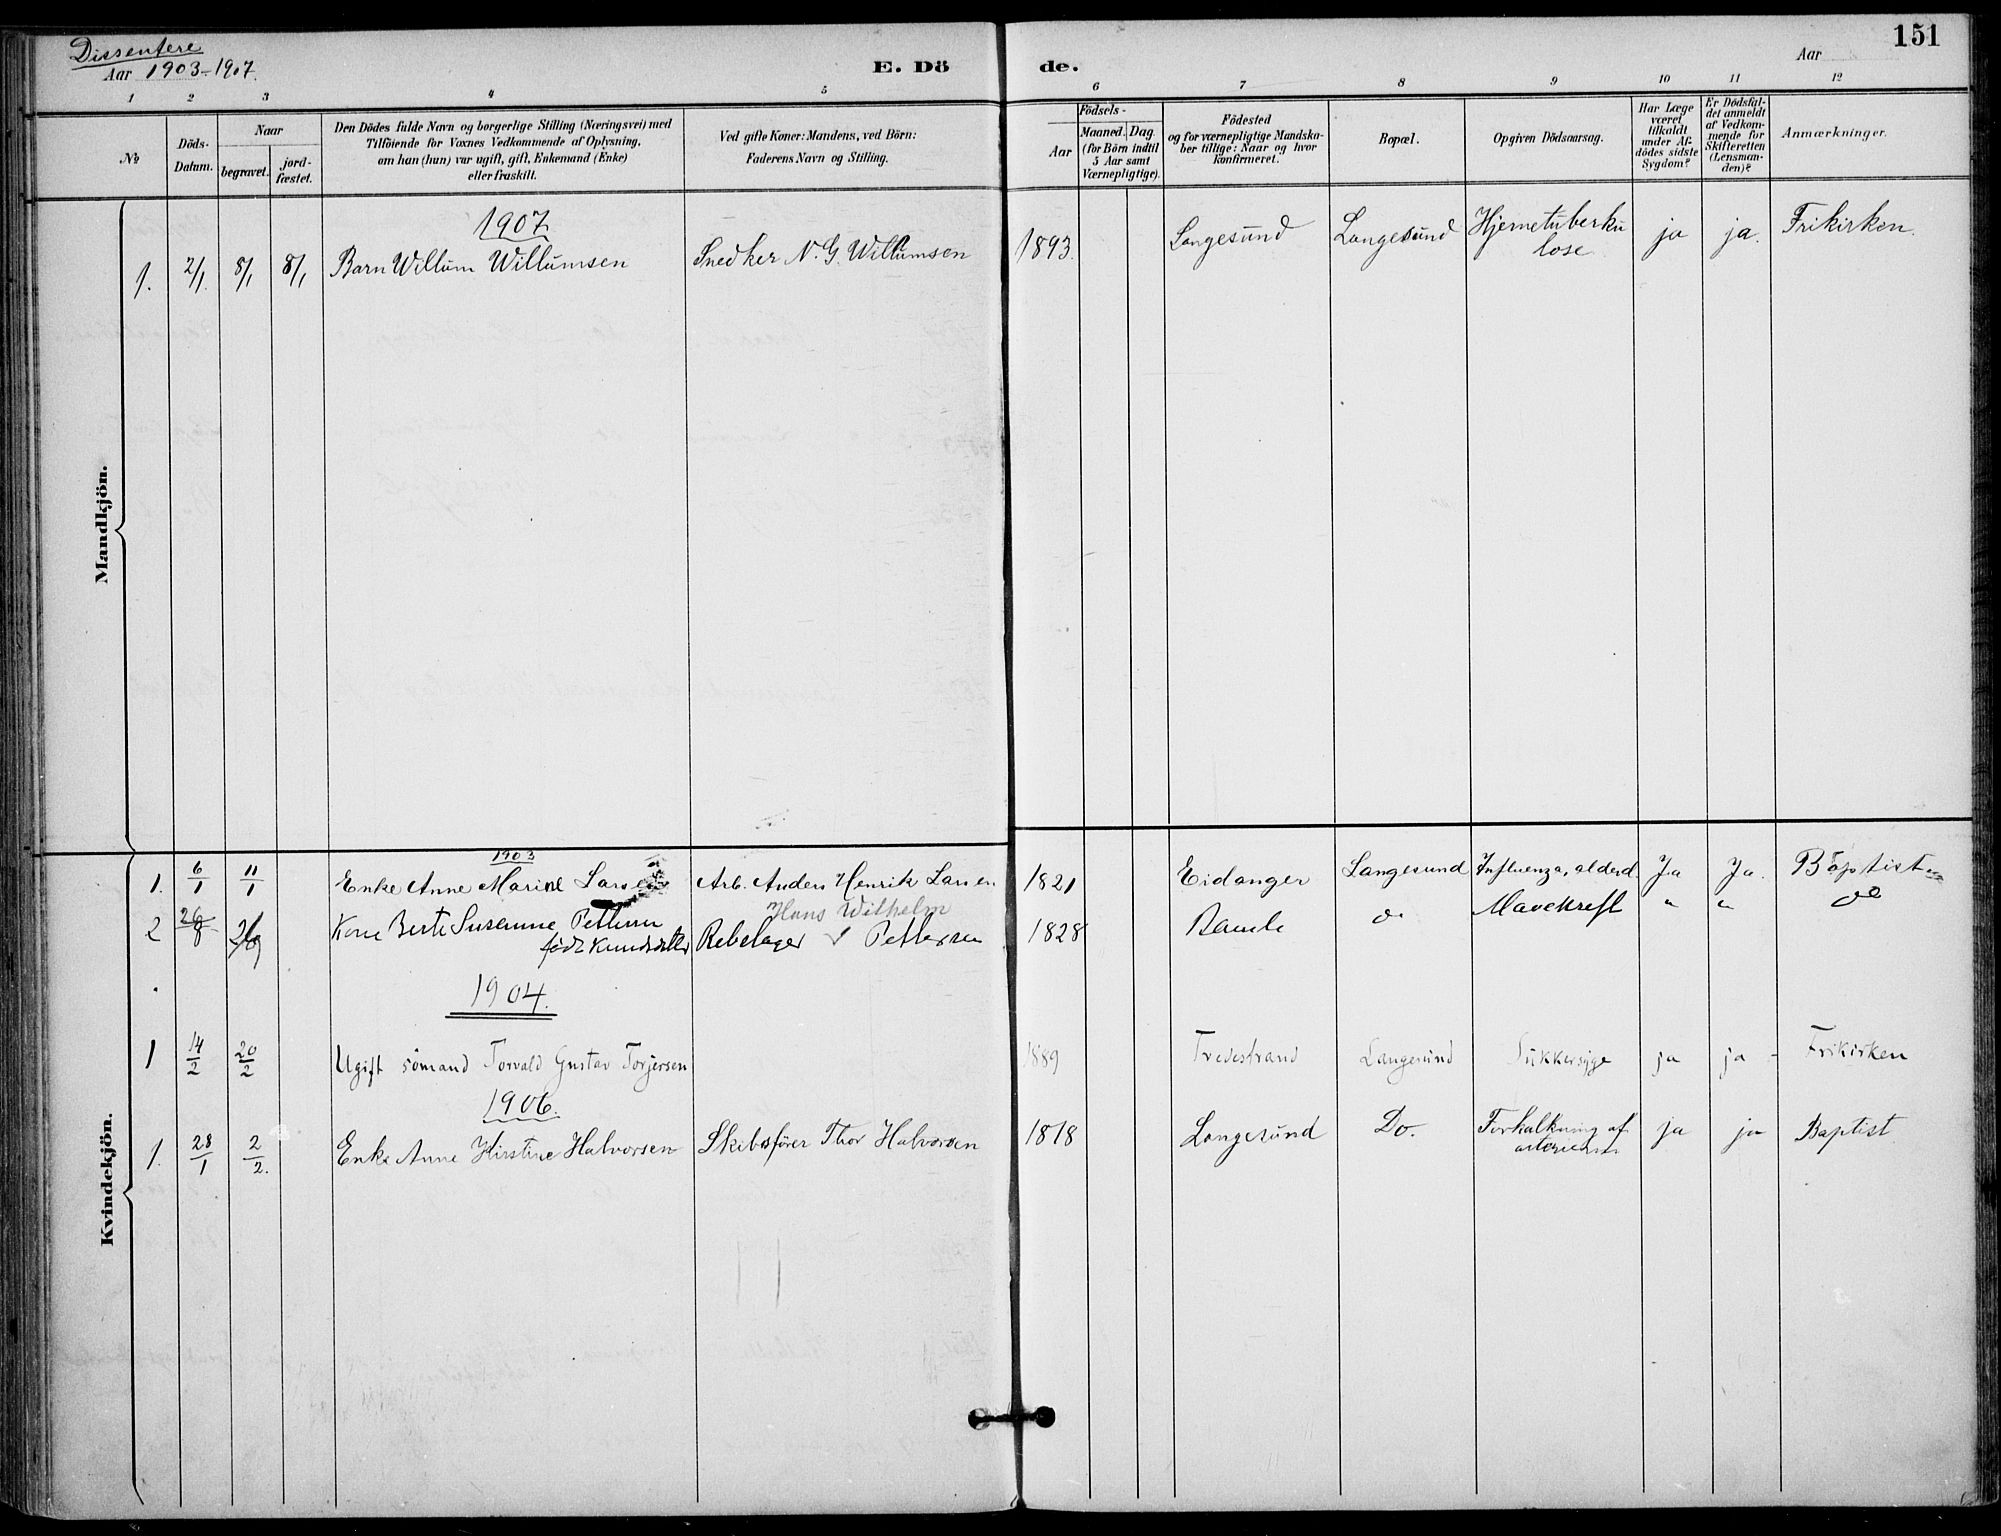 Dissentere
Aar 1903-1907.
E. Dö de.
Aar
151
1 2 3 4 5 6 7 8 9 10 11 12
No
Döds-
Datum.
Naar
begravet.
jord-
fæstet.
Den Dödes fulde Navn og borgerlige Stilling (Næringsvei) med
Tilföiende for Voxnes Vedkommende af Oplysning,
om han (hun) var ugift, gift, Enkemand (Enke)
eller fraskilt.
Ved gifte Koner: Mandens, ved Börn:
Faderens Navn og Stilling.
Födsels-
Aar
Maaned. Dag.
(for Börn indtil
5 Aar samt
Værnepligtige).
Födested
og for værnepligtige Mandska-
ber tillige: Naar og hvor
konfirmeret.
Bopæl.
Opgiven Dödsaarsag.
Har Læge
været
tilkaldt
under Af-
dödes sidste
Sygdom?
Er Dödsfal-
det anmeldt
af Vedkom-
mende for
Skifteretten
(Lensman-
den)?
Anmærkninger.
Mandkjön.
1907
1. 2/1. 8/1 8/1 Barn Willum Willumsen Snedker N. G. Willumsen 1893. Langesund Langesund Hjernetuberku
lose ja ja. Frikirken.
Kvindekjön.
1903
1. 6/1 11/1 Enke Anne Marine Larsen Arb. Anders Henrik Larsen 1821 Eidanger Langesund Influenza, alderd. Ja Ja. Baptist
Hans Wilhelm
2 26/8 2/9 Kone Berte Susanne Pettersen Rebslager √ Pettersen 1828 Bamle do Mavekreft " " do
född Knudsdatter
1904.
1 14/2 20/2 Ugift sömand Torvald Gustav Torjersen 1889 Tvedestrand Langesund Sukkersyge ja ja - Frikirken
1906.
1. 28/1 2/2. Enke Anne Kirstine Halvorsen Skibsfører Thor Halvorsen 1818 Langesund Do. Forkalkning af
arterierne ja ja Baptist